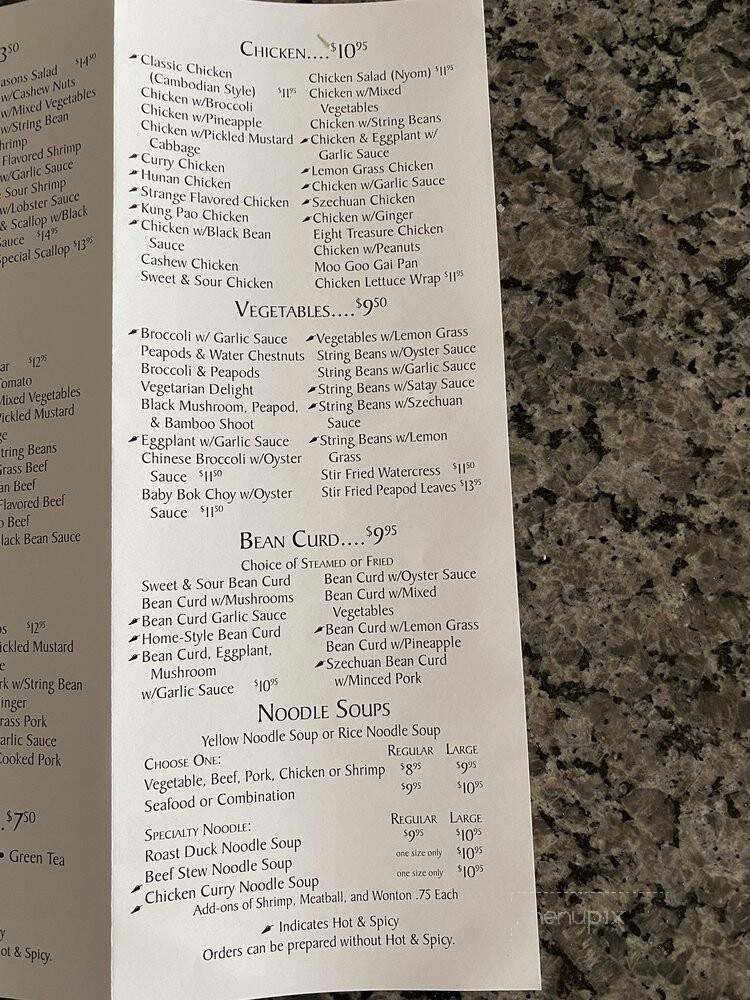 3⁵⁰
asons Salad $14⁵⁰
w/Cashew Nuts
w/Mixed Vegetables
w/String Bean
hrimp
Flavored Shrimp
w/Garlic Sauce
Sour Shrimp
w/Lobster Sauce
& Scallop w/Black
Sauce $14⁹⁵
pecial Scallop $13⁹⁵
ar $12⁹⁵
Tomato
Mixed Vegetables
Pickled Mustard
ge
tring Beans
Grass Beef
an Beef
Flavored Beef
o Beef
lack Bean Sauce
s $12⁹⁵
ickled Mustard
e
rk w/String Bean
inger
rass Pork
arlic Sauce
Cooked Pork
. $7⁵⁰
• Green Tea
y
ot & Spicy.
CHICKEN....$10⁹⁵
Classic Chicken
(Cambodian Style) $11⁹⁵
Chicken w/Broccoli
Chicken w/Pineapple
Chicken w/Pickled Mustard
Cabbage
Curry Chicken
Hunan Chicken
Strange Flavored Chicken
Kung Pao Chicken
Chicken w/Black Bean
Sauce
Cashew Chicken
Sweet & Sour Chicken
Chicken Salad (Nyom) $11⁹⁵
Chicken w/Mixed
Vegetables
Chicken w/String Beans
Chicken & Eggplant w/
Garlic Sauce
Lemon Grass Chicken
Chicken w/Garlic Sauce
Szechuan Chicken
Chicken w/Ginger
Eight Treasure Chicken
Chicken w/Peanuts
Moo Goo Gai Pan
Chicken Lettuce Wrap $11⁹⁵
VEGETABLES....$9⁵⁰
Broccoli w/ Garlic Sauce
Peapods & Water Chestnuts
Broccoli & Peapods
Vegetarian Delight
Black Mushroom, Peapod,
& Bamboo Shoot
Eggplant w/Garlic Sauce
Chinese Broccoli w/Oyster
Sauce $11⁵⁰
Baby Bok Choy w/Oyster
Sauce $11⁵⁰
Vegetables w/Lemon Grass
String Beans w/Oyster Sauce
String Beans w/Garlic Sauce
String Beans w/Satay Sauce
String Beans w/Szechuan
Sauce
String Beans w/Lemon
Grass
Stir Fried Watercress $11⁵⁰
Stir Fried Peapod Leaves $13⁹⁵
BEAN CURD....$9⁹⁵
Choice of STEAMED or FRIED
Sweet & Sour Bean Curd
Bean Curd w/Mushrooms
Bean Curd Garlic Sauce
Home-Style Bean Curd
Bean Curd, Eggplant,
Mushroom
w/Garlic Sauce $10⁹⁵
Bean Curd w/Oyster Sauce
Bean Curd w/Mixed
Vegetables
Bean Curd w/Lemon Grass
Bean Curd w/Pineapple
Szechuan Bean Curd
w/Minced Pork
NOODLE SOUPS
Yellow Noodle Soup or Rice Noodle Soup
CHOOSE ONE: REGULAR LARGE
Vegetable, Beef, Pork, Chicken or Shrimp $8⁹⁵ $9⁹⁵
Seafood or Combination $9⁹⁵ $10⁹⁵
SPECIALTY NOODLE: REGULAR LARGE
Roast Duck Noodle Soup $9⁹⁵ $10⁹⁵
Beef Stew Noodle Soup one size only $10⁹⁵
Chicken Curry Noodle Soup one size only $10⁹⁵
Add-ons of Shrimp, Meatball, and Wonton .75 Each
Indicates Hot & Spicy
Orders can be prepared without Hot & Spicy.
menupix